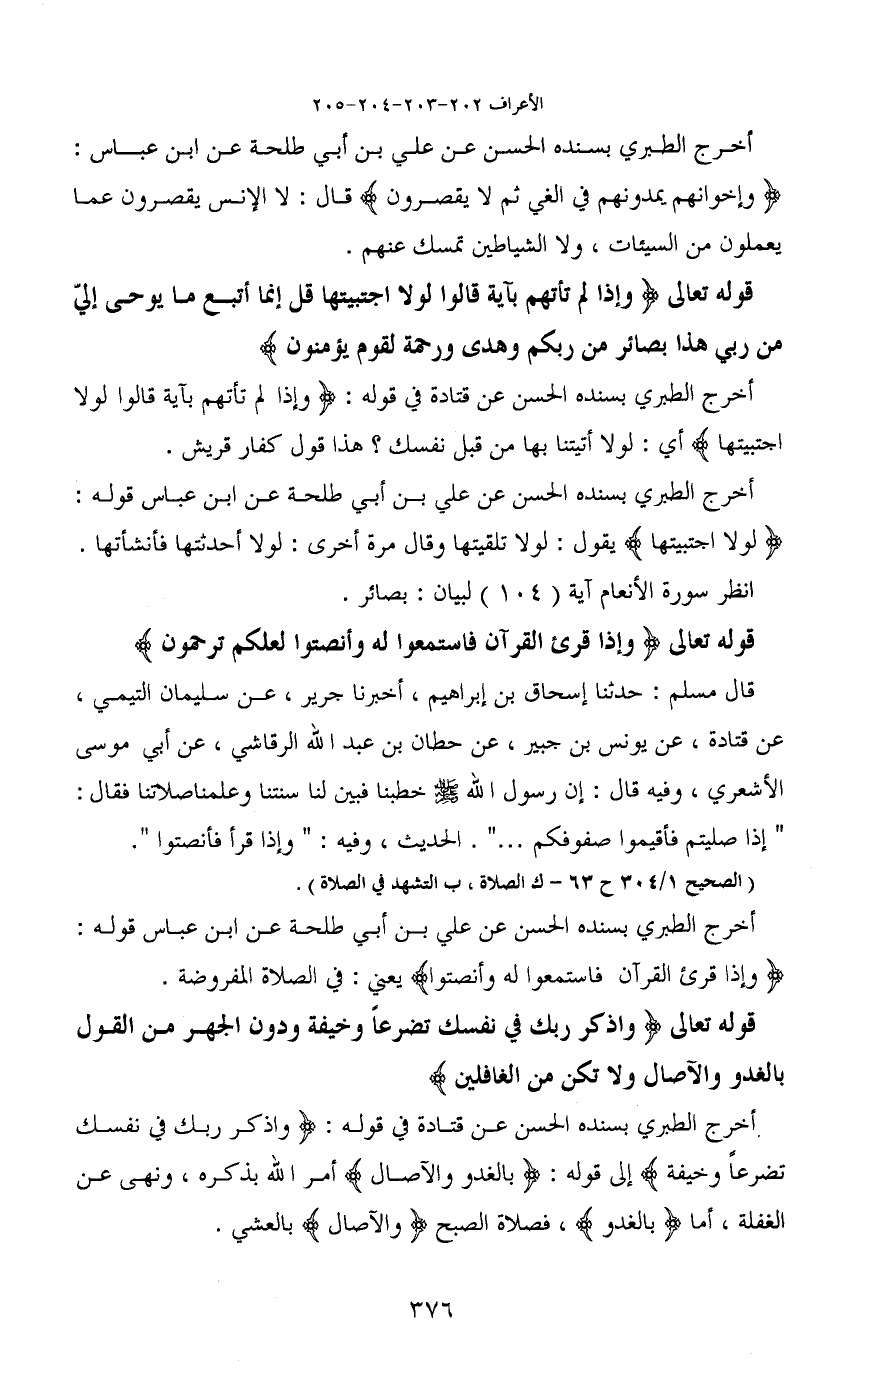 الأعراف ٢٠٢-٢٠٣-٢٠٤-٢٠٥
أخرج الطبري بسنده الحسن عن علي بن أبي طلحة عن ابن عباس :
﴿ وإخوانهم يمدونهم في الغي ثم لا يقصرون ﴾ قال : لا الإنس يقصرون عما
يعملون من السيئات ، ولا الشياطين تمسك عنهم .
قوله تعالى ﴿ وإذا لم تأتهم بآية قالوا لولا اجتبيتها قل إنما أتبع ما يوحى إليّ
من ربي هذا بصائر من ربكم وهدى ورحمة لقوم يؤمنون ﴾
أخرج الطبري بسنده الحسن عن قتادة في قوله : ﴿ وإذا لم تأتهم بآية قالوا لولا
اجتبيتها ﴾ أي : لولا أتيتنا بها من قبل نفسك ؟ هذا قول كفار قريش .
أخرج الطبري بسنده الحسن عن علي بن أبي طلحة عن ابن عباس قوله :
﴿ لولا اجتبيتها ﴾ يقول : لولا تلقيتها وقال مرة أخرى : لولا أحدثتها فأنشأتها .
انظر سورة الأنعام آية ( ١٠٤ ) لبيان : بصائر .
قوله تعالى ﴿ وإذا قرئ القرآن فاستمعوا له وأنصتوا لعلكم ترحمون ﴾
قال مسلم : حدثنا إسحاق بن إبراهيم ، أخبرنا جرير ، عن سليمان التيمي ،
عن قتادة ، عن يونس بن جبير ، عن حطان بن عبد الله الرقاشي ، عن أبي موسى
الأشعري ، وفيه قال : إن رسول الله ﷺ خطبنا فبين لنا سنتنا وعلمناصلاتنا فقال :
" إذا صليتم فأقيموا صفوفكم ..." . الحديث ، وفيه : " وإذا قرأ فأنصتوا ".
( الصحيح ٣٠٤/١ ح ٦٣ – ك الصلاة ، ب التشهد في الصلاة ) .
أخرج الطبري بسنده الحسن عن علي بن أبي طلحة عن ابن عباس قوله :
﴿ وإذا قرئ القرآن فاستمعوا له وأنصتوا﴾ يعني : في الصلاة المفروضة .
قوله تعالى ﴿ واذكر ربك في نفسك تضرعاً وخيفة ودون الجهر من القول
بالغدو والآصال ولا تكن من الغافلين ﴾
أخرج الطبري بسنده الحسن عن قتادة في قوله : ﴿ واذكر ربك في نفسك
تضرعاً وخيفة ﴾ إلى قوله : ﴿ بالغدو والآصال ﴾ أمر الله بذكره ، ونهى عن
الغفلة ، أما ﴿ بالغدو ﴾ ، فصلاة الصبح ﴿ والآصال ﴾ بالعشي .
٣٧٦